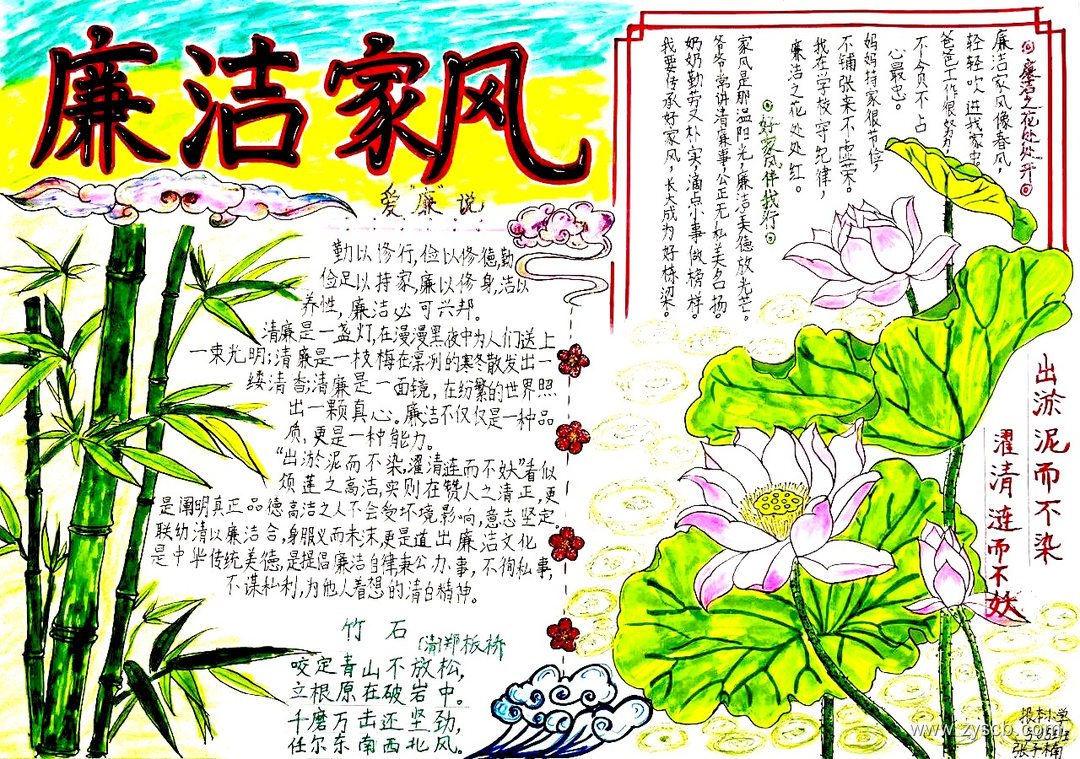 廉洁家风
爱“廉”说
勤以修行,俭以修德,勤
俭足以持家,廉以修身,洁以
养性,廉洁必可兴邦。
清廉是一盏灯,在漫漫黑夜中为人们送上
一束光明;清廉是一枝梅在凛冽的寒冬散发出一
缕清香;清廉是一面镜,在纷繁的世界照
出一颗真心。廉洁不仅仅是一种品
质,更是一种能力。
“出淤泥而不染,濯清涟而不妖”看似
颂莲之高洁,实则在赞人之清正,更
是阐明真正品德高洁之人不会受环境影响,意志坚定。
联幼清以廉洁合,身服义而未沫,更是道出廉洁文化
是中华传统美德,是提倡廉洁自律秉公办事,不徇私事,
不谋私利,为他人着想的清白精神。
竹石
(清)郑板桥
咬定青山不放松,
立根原在破岩中。
千磨万击还坚劲,
任尔东南西北风。
廉洁之花处处开
廉洁家风像春风,
轻轻吹进我家中
爸爸工作很努力,
不今贝不占
心最忠。
妈妈持家很节俭,
不铺张来不虚荣。
我在学校守纪律,
廉洁之花处处红。
好家风伴我行
家风是那温阳光,廉洁美德放光芒。
爷爷常讲清廉事,公正无私美名扬。
奶奶勤劳又朴实,滴点小事做榜样。
我要传承好家风,长大成为好栋梁。
出淤泥而不染
濯清涟而不妖
张子楠
www.zyscb.com